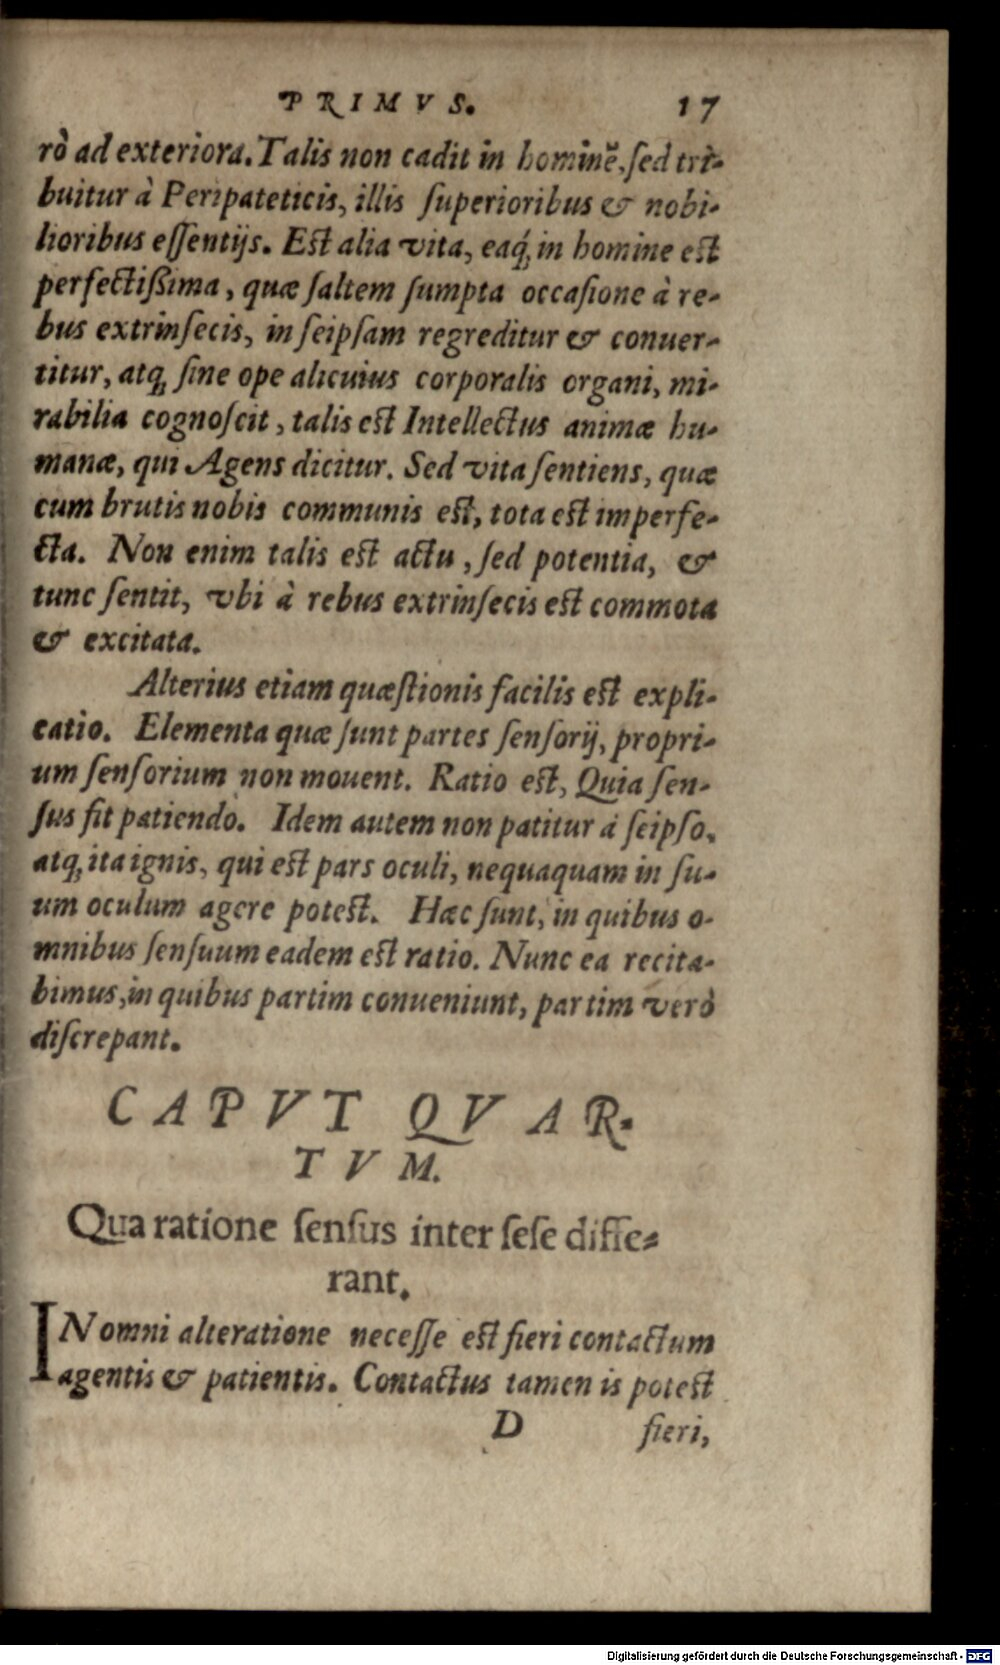 PRIMVS. 17
rò ad exteriora. Talis non cadit in hominẽ, ſed tri-
buitur à Peripateticis, illis ſuperioribus & nobi-
lioribus eſſentijs. Est alia vita, eaq́; in homine est
perfectißima, quæ ſaltem ſumpta occaſione à re-
bus extrinſecis, in ſeipſam regreditur & conuer-
titur, atq; ſine ope alicuius corporalis organi, mi-
rabilia cognoſcit, talis est Intellectus animæ hu-
manæ, qui Agens dicitur. Sed vita ſentiens, quæ
cum brutis nobis communis est, tota est imperfe-
cta. Non enim talis est actu, ſed potentia, &
tunc ſentit, vbi à rebus extrinſecis est commota
& excitata.
Alterius etiam quæſtionis facilis est expli-
catio. Elementa quæ ſunt partes ſenſorij, propri-
um ſenſorium non mouent. Ratio est, Quia ſen-
ſus fit patiendo. Idem autem non patitur à ſeipſo,
atq; ita ignis, qui est pars oculi, nequaquam in ſu-
um oculum agere potest. Hæc ſunt, in quibus o-
mnibus ſenſuum eadem est ratio. Nunc ea recita-
bimus, in quibus partim conueniunt, partim verò
diſcrepant.
CAPVT QVAR-
TVM.
Qua ratione ſenſus inter ſeſe diffe-
rant.
IN omni alteratione neceſſe est fieri contactum
agentis & patientis. Contactus tamen is potest
D fieri,
Digitalisierung gefördert durch die Deutsche Forschungsgemeinschaft - DFG